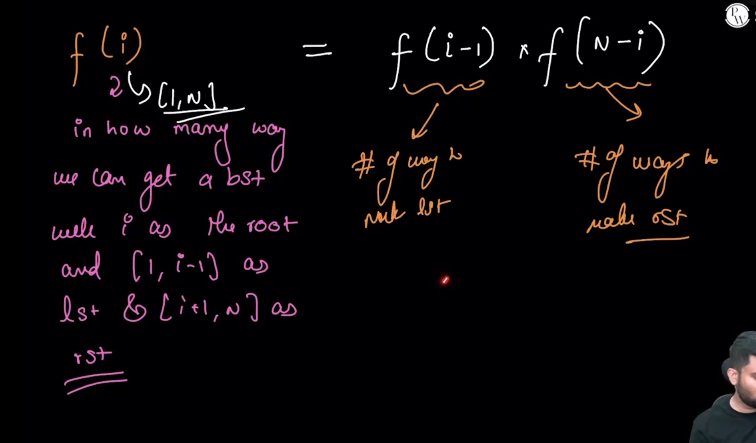 f(i) = f(i-1) * f(N-i)
↳ [1,N]
in how many way
we can get a bst
with i as the root
and [1, i-1] as
lst & [i+1, N] as
rst
# of way to
make lst
# of ways to
make rst
PW